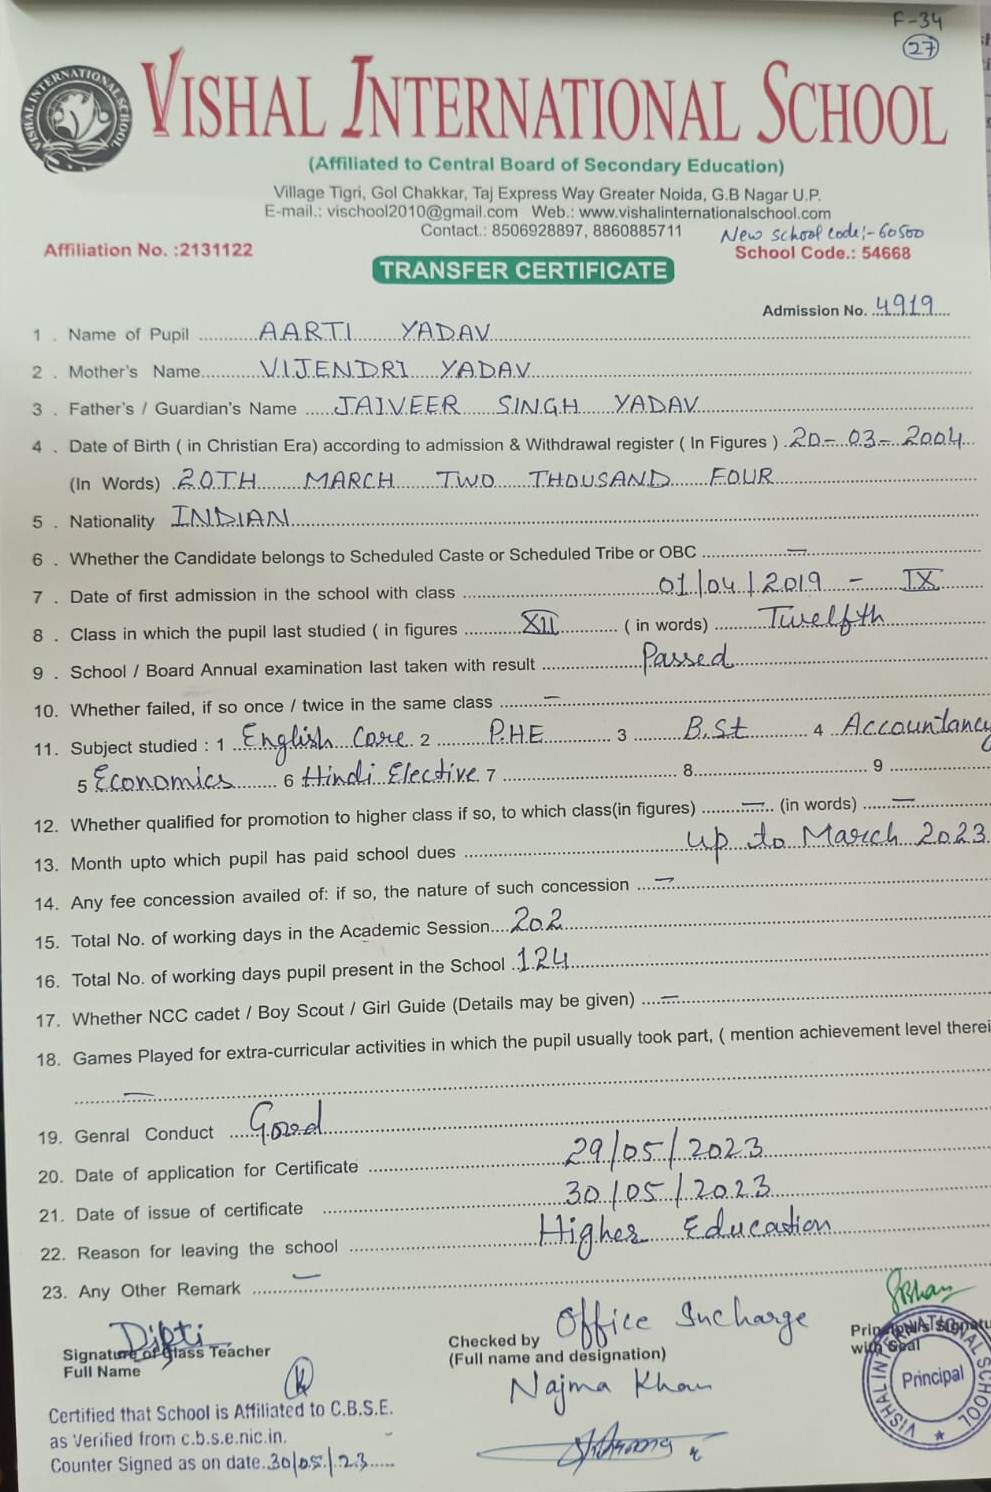 F-34
27
VISHAL INTERNATIONAL SCHOOL
VISHAL INTERNATIONAL SCHOOL
(Affiliated to Central Board of Secondary Education)
Village Tigri, Gol Chakkar, Taj Express Way Greater Noida, G.B Nagar U.P.
E-mail.: vischool2010@gmail.com Web.: www.vishalinternationalschool.com
Contact.: 8506928897, 8860885711
New school code:- 60500
Affiliation No. :2131122
School Code.: 54668
TRANSFER CERTIFICATE
Admission No. 4919
1 . Name of Pupil AARTI YADAV
2 . Mother's Name VIJENDRI YADAV
3 . Father's / Guardian's Name JAIVEER SINGH YADAV
4 . Date of Birth ( in Christian Era) according to admission & Withdrawal register ( In Figures ) 20-03-2004
(In Words) 20TH MARCH TWO THOUSAND FOUR
5 . Nationality INDIAN
6 . Whether the Candidate belongs to Scheduled Caste or Scheduled Tribe or OBC —
7 . Date of first admission in the school with class 01/04/2019 - IX
8 . Class in which the pupil last studied ( in figures XII ( in words) Twelfth
9 . School / Board Annual examination last taken with result Passed
10. Whether failed, if so once / twice in the same class —
11. Subject studied : 1 English Core 2 P.HE 3 B.St 4 Accountancy
5 Economics 6 Hindi Elective 7 8 9
12. Whether qualified for promotion to higher class if so, to which class(in figures) — (in words) —
13. Month upto which pupil has paid school dues up to March 2023
14. Any fee concession availed of: if so, the nature of such concession —
15. Total No. of working days in the Academic Session 202
16. Total No. of working days pupil present in the School 124
17. Whether NCC cadet / Boy Scout / Girl Guide (Details may be given) —
18. Games Played for extra-curricular activities in which the pupil usually took part, ( mention achievement level therei
—
19. Genral Conduct Good
20. Date of application for Certificate 29/05/2023
21. Date of issue of certificate 30/05/2023
22. Reason for leaving the school Higher Education
23. Any Other Remark —
Dipti
Signature of Class Teacher
Full Name
Office Incharge
Checked by
(Full name and designation)
Najma Khan
Principal's Signatu
with Seal
VISHAL INTERNATIONAL SCHOOL
Principal
Certified that School is Affiliated to C.B.S.E.
as Verified from c.b.s.e.nic.in.
Counter Signed as on date 30/05/23